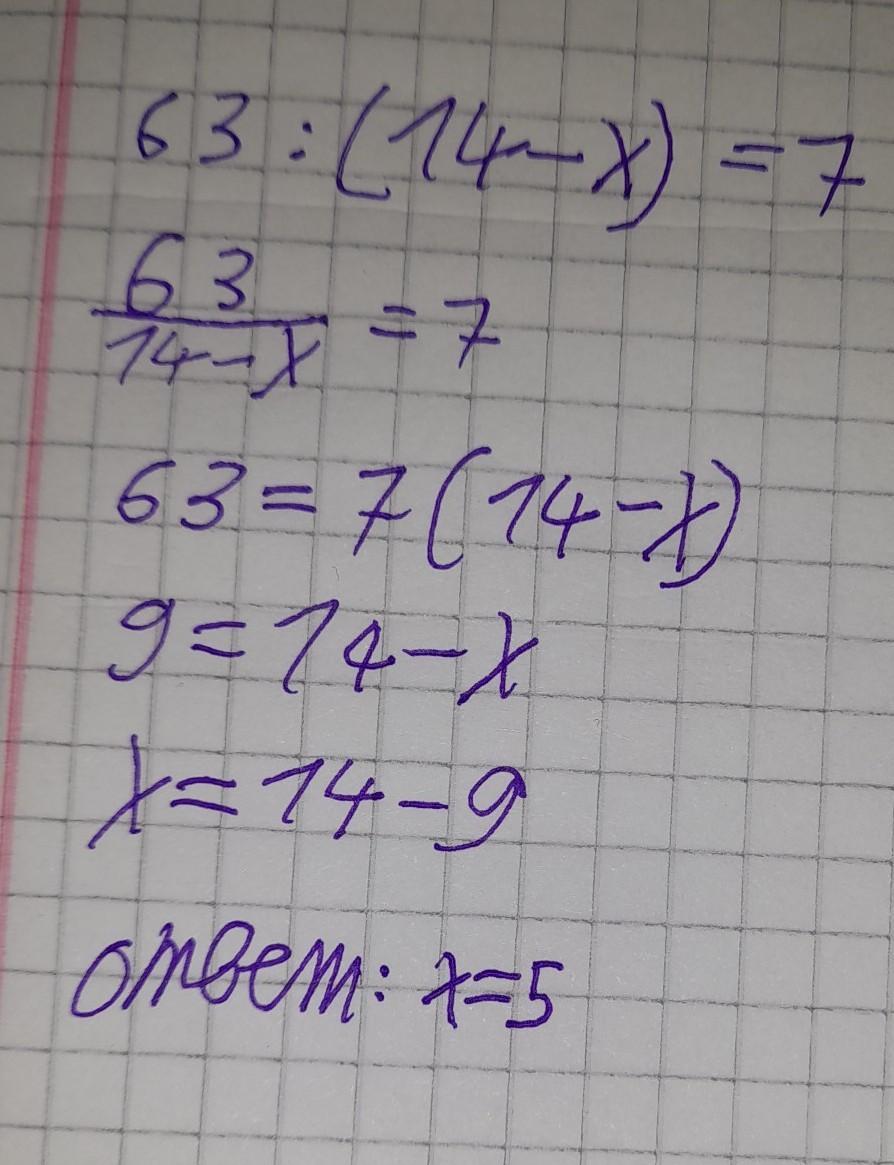 63 : (14 - x) = 7
63
14 - x
= 7
63 = 7(14 - x)
9 = 14 - x
x = 14 - 9
ответ: x=5